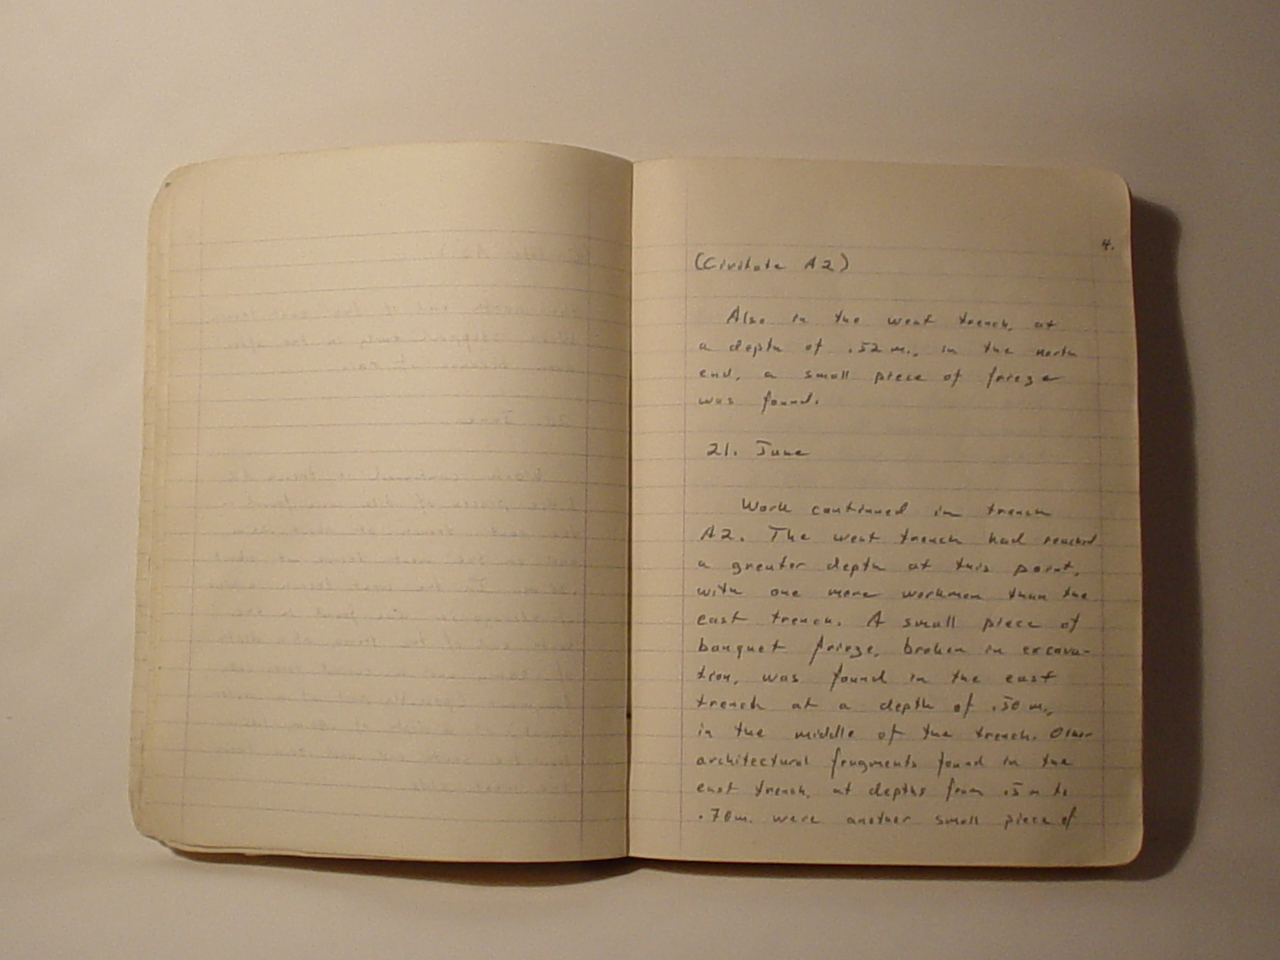 4.
(Civitate A2)
Also in the west trench, at
a depth of .52 m., in the north
end, a small piece of frieze
was found.
21. June
Work continued in trench
A2. The west trench had reached
a greater depth at this point,
with one more workman than the
east trench. A small piece of
banquet frieze, broken in excava-
tion, was found in the east
trench at a depth of .50 m.,
in the middle of the trench. Other
architectural fragments found in the
east trench, at depths from .5 m to
.70m. were another small piece of